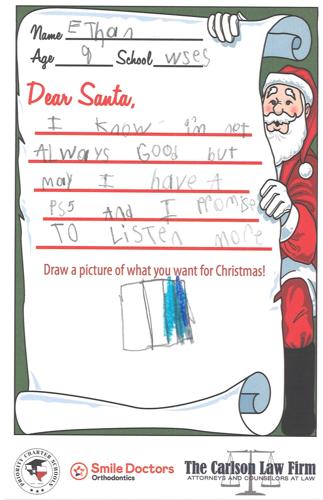 Name Ethan
Age 9 School WSES
Dear Santa,
I know i'm not
Always Good but
may I have A
PS5 And I Promise
TO Listen more
Draw a picture of what you want for Christmas!
PRIORITY CHARTER SCHOOLS
Smile Doctors
Orthodontics
The Carlson Law Firm
ATTORNEYS AND COUNSELORS AT LAW